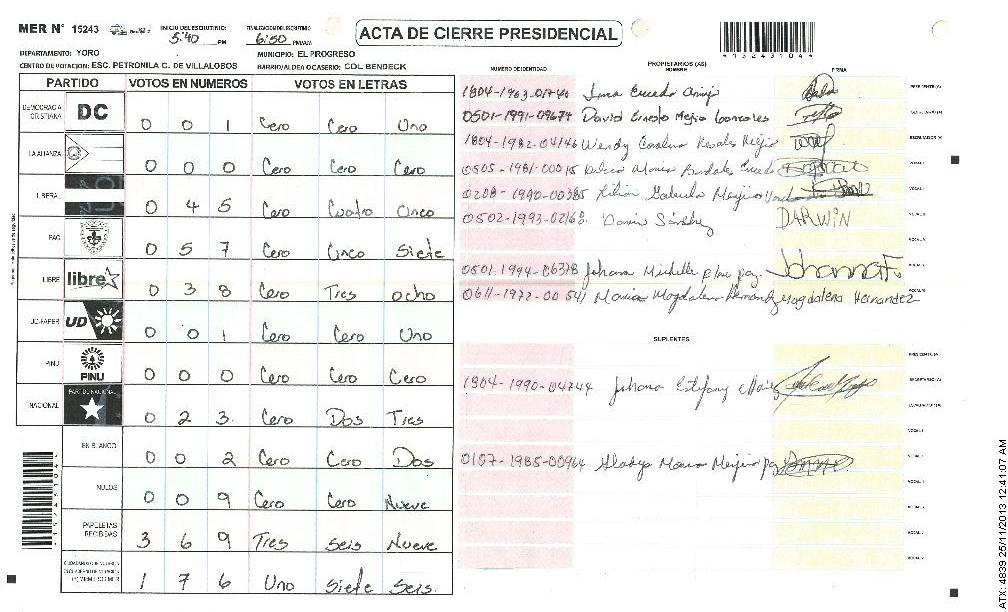 MER N° 15243 INICIO DEL ESCRUTINIO: 5:40 PM FINALIZACION DEL ESCRUTINIO 6:50 PM/AM
ACTA DE CIERRE PRESIDENCIAL
DEPARTAMENTO: YORO MUNICIPIO: EL PROGRESO
CENTRO DE VOTACION: ESC. PETRONILA C. DE VILLALOBOS BARRIO/ALDEA O CASERIO: COL BENDECK
PARTIDO VOTOS EN NUMEROS VOTOS EN LETRAS
DEMOCRACIA CRISTIANA DC 0 0 1 Cero Cero Uno
LA ALIANZA 0 0 0 Cero Cero Cero
LIBERAL 0 4 5 Cero Cuatro Cinco
PAC 0 5 7 Cero Cinco Siete
LIBRE libre 0 3 8 Cero Tres ocho
UD-FAPER UD 0 0 1 Cero Cero Uno
PINU PINU 0 0 0 Cero Cero Cero
NACIONAL PARTIDO NACIONAL 0 2 3 Cero Dos Tres
EN BLANCO 0 0 2 Cero Cero Dos
NULOS 0 0 9 Cero Cero Nueve
PAPELETAS RECIBIDAS 3 6 9 Tres Seis Nueve
1 7 6 Uno Siete Seis.
PROPIETARIOS (AS)
NUMERO DE IDENTIDAD NOMBRE FIRMA
1804-1963-01740 Irma
0501-1991-09674 David Ernesto Mejia Gonzales
1804-1982-04146 Wendy Carolina Rosales Mejia
0505-1981-00015
0208-1990-00385
0502-1993-02163. Sánchez DARWIN
0501-1994-06378 Johana Michelle Johanna
0611-1972-00541 Maria Magdalena Hernandez Magdalena Hernandez
SUPLENTES
1804-1990-04744 Johana Estefany
0107-1985-00964 Gladys Maria
ATX: 4839 25/11/2013 12:41:07 AM